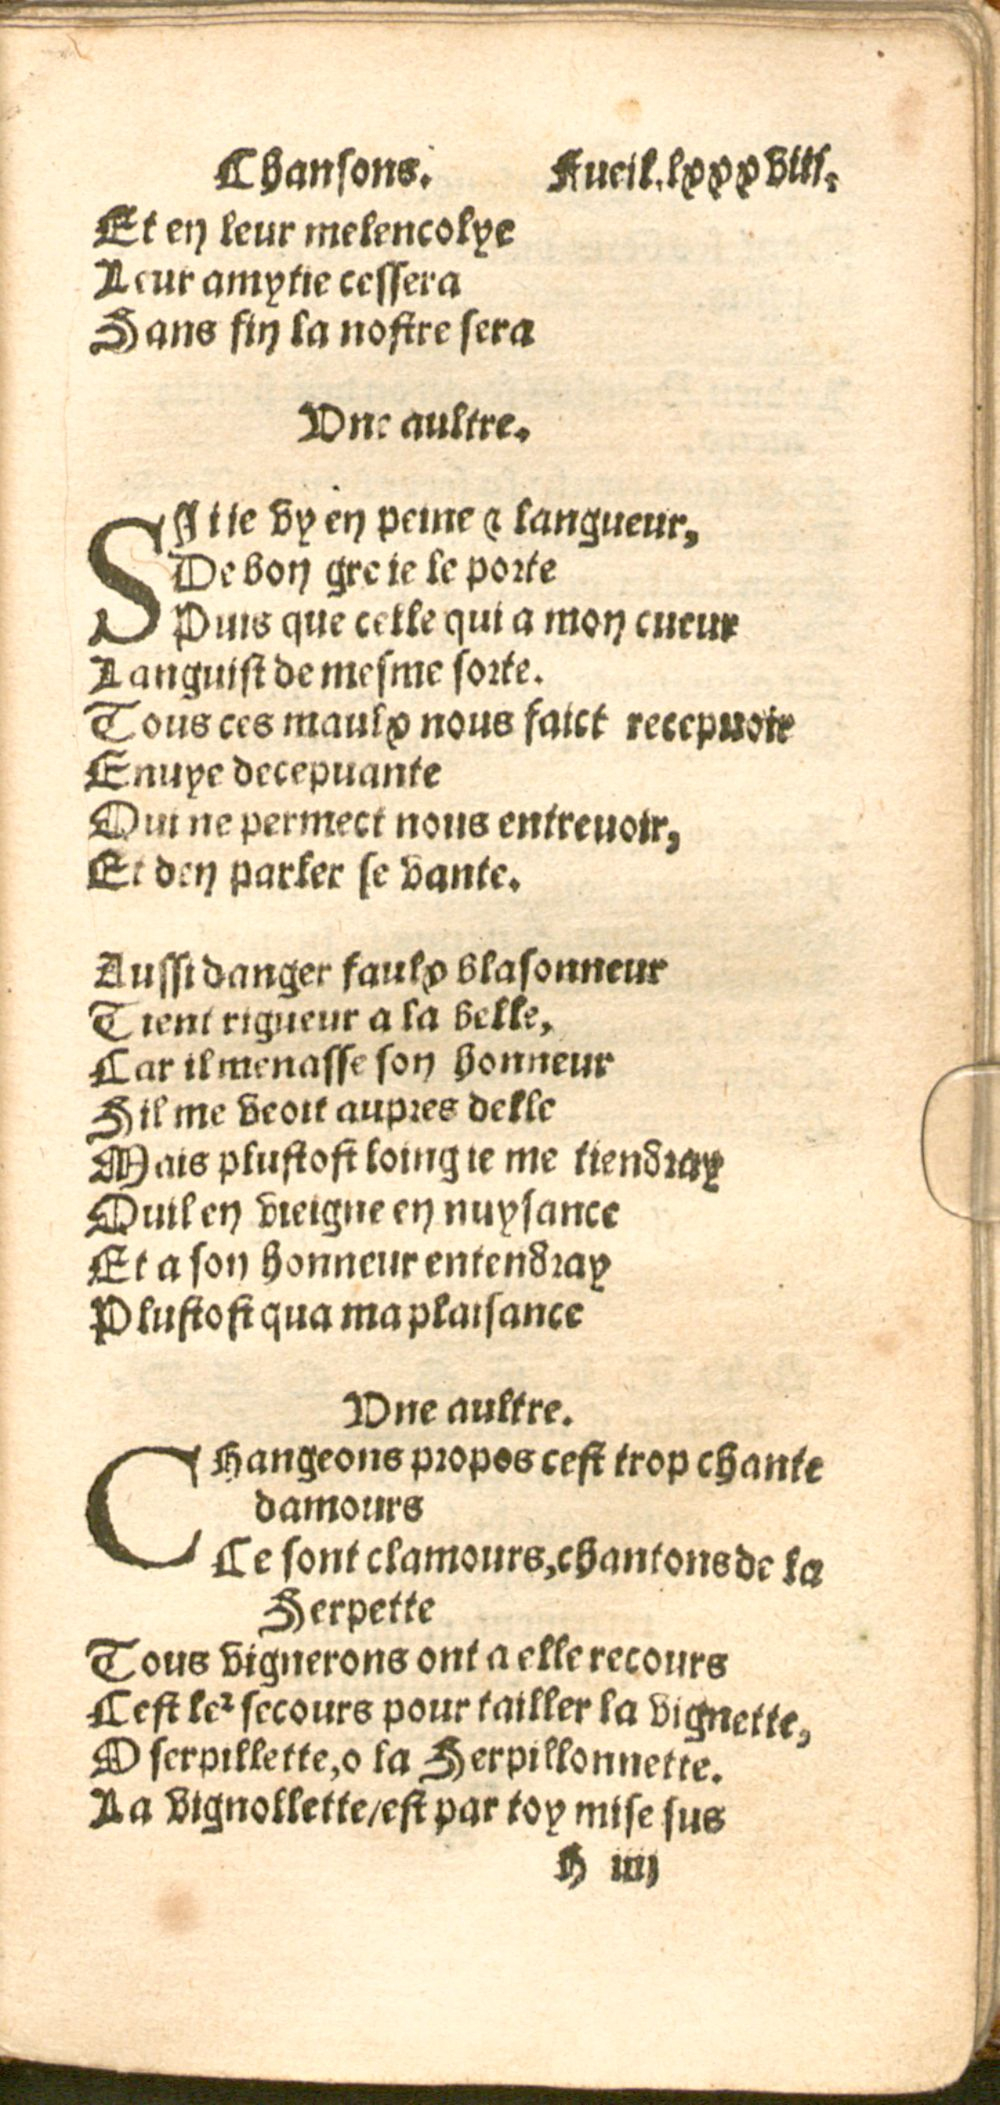 Chansons. Fueil.lxxxviii.
Et en leur melencolye
Leur amytie cessera
Sans fin la nostre sera
Vne aultre.
SI ie vy en peine & langueur,
De bon gre ie le porte
Puis que celle qui a mon cueur
Languist de mesme sorte.
Tous ces maulx nous faict recepuoir
Enuye decepuante
Qui ne permect nous entreuoir,
Et den parler se vante.
Aussi danger faulx blasonneur
Tient rigueur a la belle,
Car il menasse son honneur
Sil me veoit aupres delle
Mais plustost loing ie me tiendray
Quil en vieigne en nuysance
Et a son honneur entendray
Plustost qua ma plaisance
Vne aultre.
CHangeons propos cest trop chante
damours
Ce sont clamours,chantons de la
Serpette
Tous vignerons ont a elle recours
Cest leꝛ secours pour tailler la vignette,
O serpillette,o la Serpillonnette.
La vignollette/est par toy mise sus
h iiij